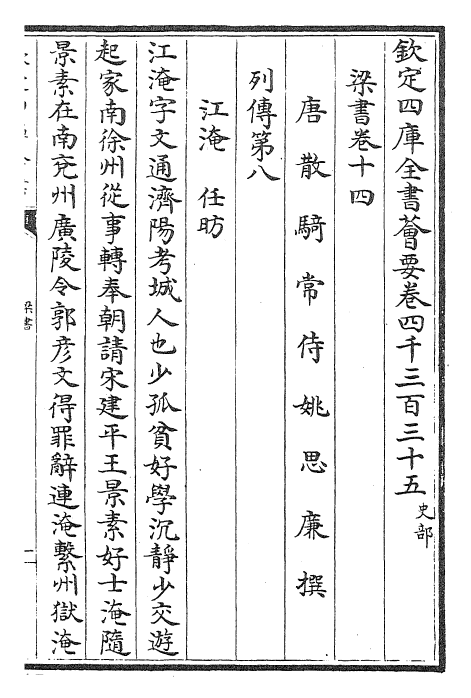 欽定四庫全書薈要卷四千三百三十五史部
梁書卷十四
唐散騎常侍姚思廉撰
列傳第八
江淹 任昉
江淹字文通濟陽考城人也少孤貧好學沉靜少交遊
起家南徐州從事轉奉朝請宋建平王景素好士淹隨
景素在南兖州廣陵令郭彦文得罪辭連淹繫州獄淹
梁書